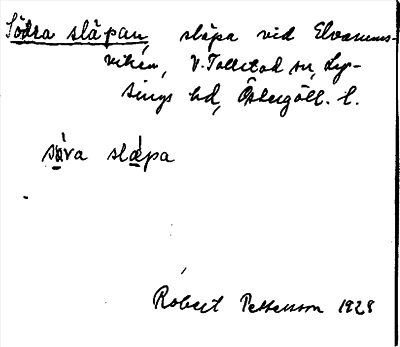 Södra släpan, släpa vid Elvarums-
viken, V. Tollstad sn, Lys-
sings hd, Östergötl. l.
sø̀va slæ̀pa
Robert Pettersson 1928